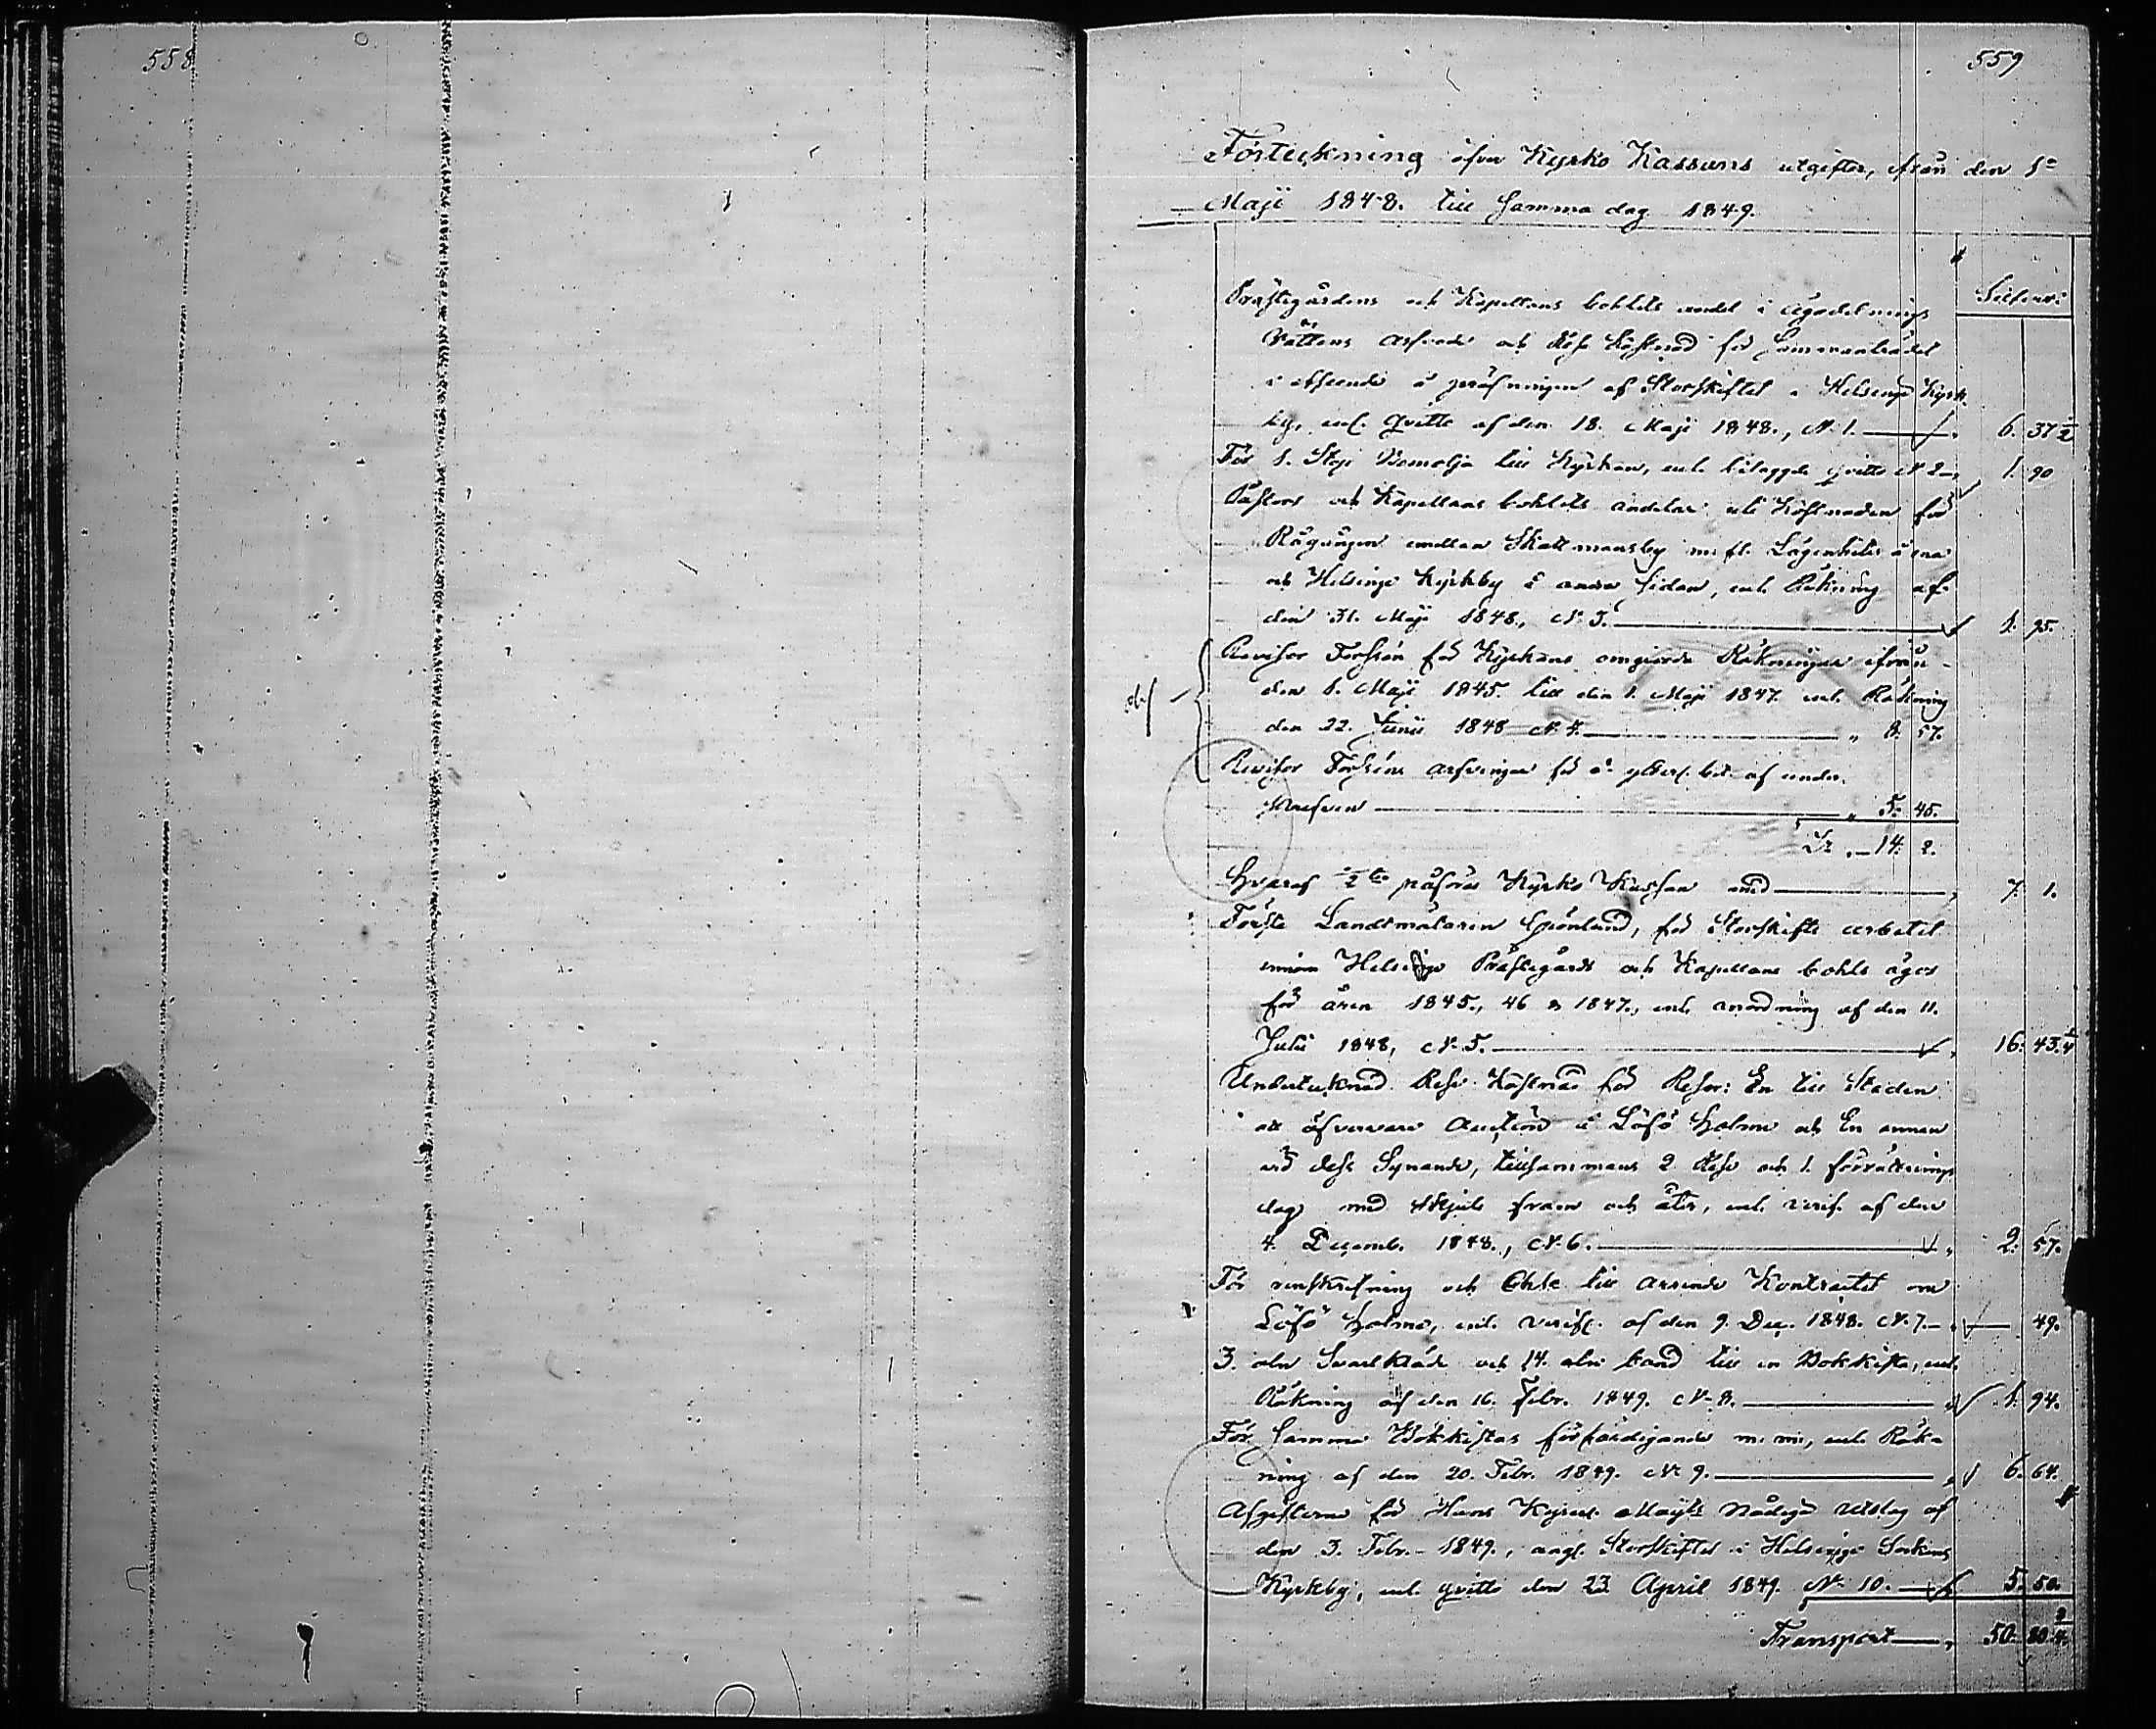 558
559
Förteckning öfver Kyrko Kassans utgifter, ifrån den 1a
Maji 1848. till samma dag 1849.
Silfver:
Prästegårdens och Kapellans bohlets andel i Ägodelnings
Rättens arfvode och Rese kostnad för sammanträdet
i afseende å pröfningen af Storskiftet i Helsinge Kyrk-
by, enl. qvitto af den 18. Maji 1848., N. 1. 6. 37 1/2
För 1. Stop Bomolja till Kyrkan, enl. bilagde qvitto N 2 1. 90
Pastors och Kapellans bohlets andelar uti Kostnaden för
Rågången emellan Skattmansby m. fl. Lägenheter å ena
och Helsinge Kyrkby å andra sidan, enl. Räkning af
den 31. Maji 1848., N. 3. 1. 95.
Revisor Forssén för Kyrkans omgjorda Räkningar ifrån
den 1. Maji 1845. till den 1. Maji 1847. enl. Räkning
den 22. Junii 1848 N. 4. " 8. 57.
Revisor Forsséns arfvingar för d:o ytterl. bet. af under-
skrefven " 5. 45.
Sr. 14. 2.
Hvaraf 1/2 påföres Kyrko Kassan med 7. 1.
Förste Landtmätaren Grönlund, för Storskifts arbetet
innom Helsinge Prästegårds och Kapellans bohls ägor
för åren 1845., 46 & 1847., enl. anordning af den 11.
Julii 1848, N. 5. 16. 43. 1/4
Undertecknad Rese Kostnad för Resor: En till Staden
att öfvervara Auction å Löfö holme och En annan
vid dess Synande, tillsammans 2 Rese och 1. förrättnings
dag med skjuts fram och åter, enl. verif. af den
4. Decemb. 1848., N. 6. 2. 57.
För renskrifning och Charta till arrende Kontractet om
Löfö holme, enl. verif. af den 9. Dec. 1848. N. 7. 49.
3. aln Svart kläde och 14. aln band till en Bokkista, enl.
Räkning af den 16. Febr. 1849. N. 8. 1. 94.
För samma Bokkistas förfärdigande m. m., enl. Räk-
ning af den 20. Febr. 1849. N. 9. 6. 64.
Afgifterna för Hans Kejserl. Maj:ts Nådiga utslag af
den 3. Febr. 1849., angl. Storskiftet i Helsinge Sockens
Kyrkby, enl. qvitto den 23. April 1849. N. 10. 5. 50.
Transport 50. 80 3/4.